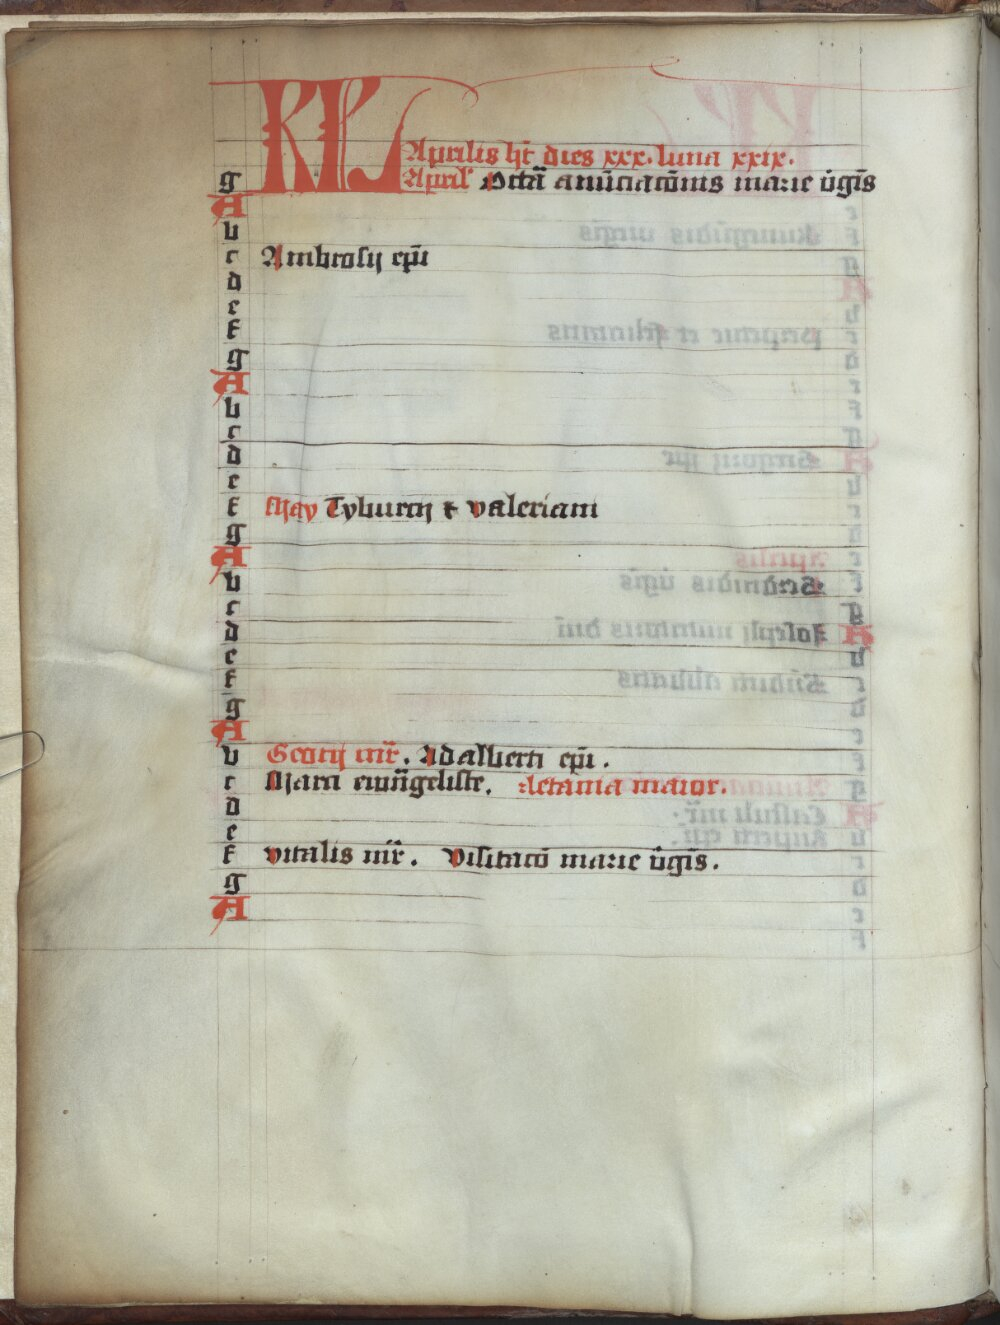 KL
Aprilis ht̄ dies xxx. luna xxix.
g April' Octā anūciacōnis marie v̄gīs
A
b
c Ambrosij ep̄i
d
e
f
g
A
b
c
d
e
f Tyburcij ⁊ valeriani
g
A
b
c
d
e
f
g
A
b Georij mr̄. Adalberti ep̄i.
c Marci ewāgeliste. letania maior.
d
e
f vitalis mr̄. visitacō marie v̄gīs.
g
A